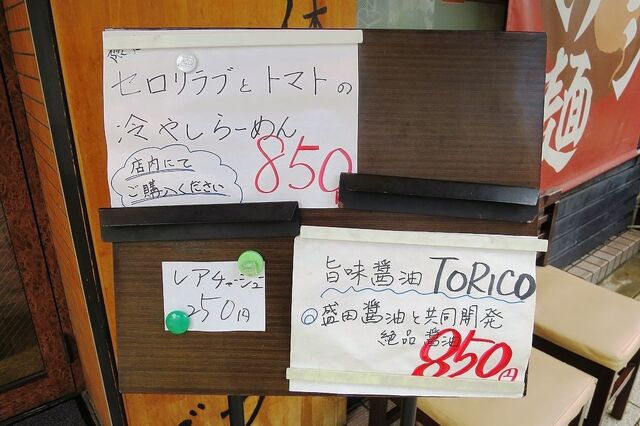 セロリラブとトマトの
冷やしらーめん
850円
店内にて
ご購入ください
レアチャーシュ
250円
旨味醤油 TORICO
◎盛田醤油と共同開発
絶品醤油
850円
麺